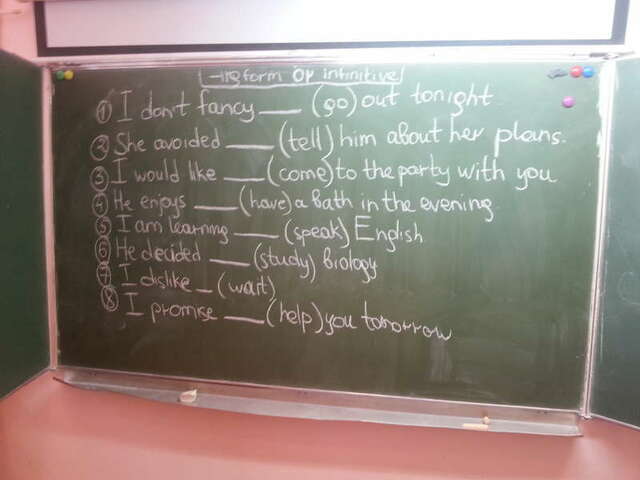 -ing form or infinitive
① I don't fancy ___ (go) out tonight
② She avoided ___ (tell) him about her plans.
③ I would like ___ (come) to the party with you
④ He enjoys ___ (have) a bath in the evening
⑤ I am learning ___ (speak) English
⑥ He decided ___ (study) biology
⑦ I dislike _ (wait)
⑧ I promise ___ (help) you tomorrow